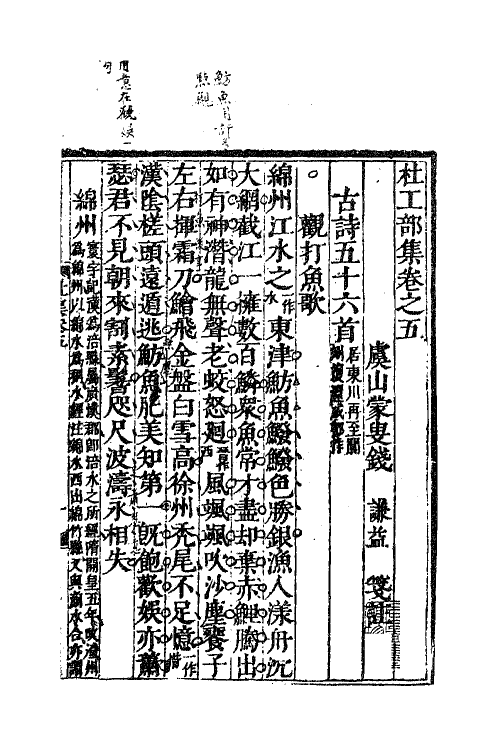 杜工部集卷之五
虞山蒙叟錢 謙益 箋註
古詩五十六首
居東川再至閬
觀打魚歌
綿州江水之一作水東津魴魚鱍鱍色勝銀漁人漾舟沉
大網截江一擁數百鱗眾魚常才盡却棄赤鯉騰出
如有神潛龍無聲老蛟怒廻風颯颯吹沙塵饔子
左右揮霜刀鱠飛金盤白雪高徐州禿尾不足憶一作惜
漢陰槎頭遠遁逃魴魚肥美知第一既飽歡娛亦蕭
瑟君不見朝來割素鬐咫尺波濤永相失
綿州
寰宇記漢為涪縣屬廣漢郡卽涪水之所經隋開皇五年改潼州
為綿州以綿水為
水西出綿竹縣又與
水合亦謂